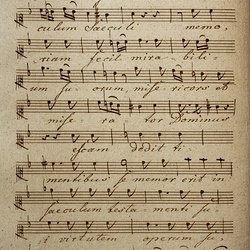 culum saeculi memo,
riam fecit mira bili,
um su, orum, mise, ricors et
mise, ra, tor Dominus
escam dedit ti,
mentibus se memor erit in
saeculum testa, menti su,
i virtutem operum su,